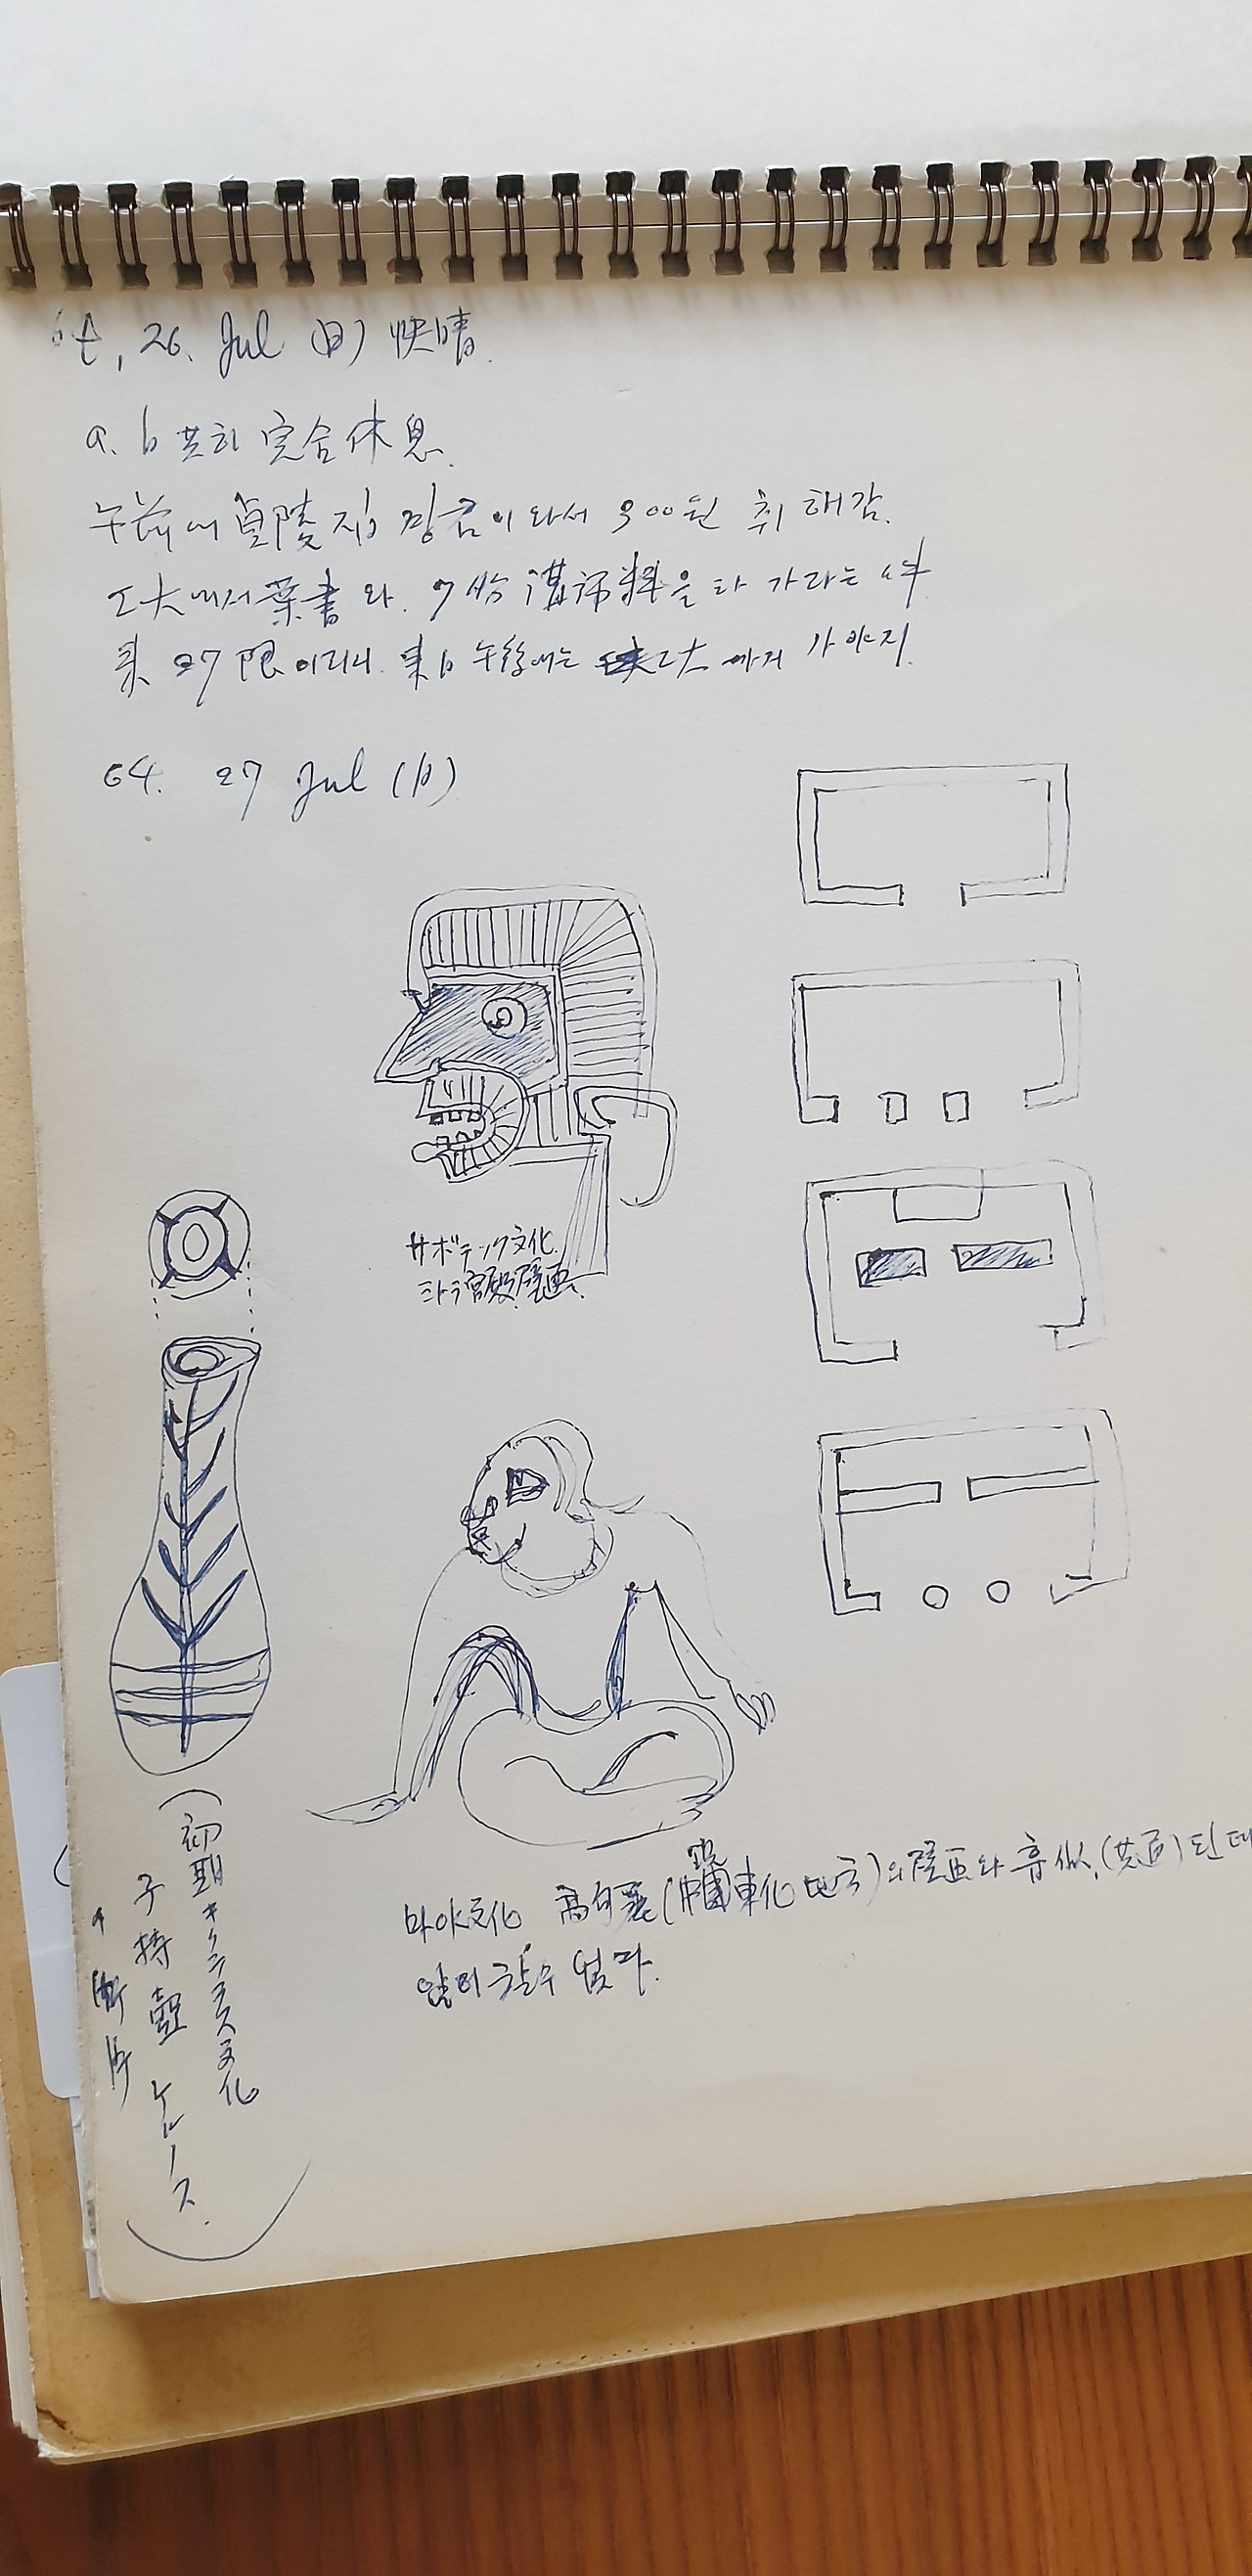 64, 26. Jul (日) 快晴.
a. b 共히 完全休息.
午前에 貞陵 집 장군이 와서 300원 취해감.
工大에서 葉書 와. 7月分 講師料을 타 가라는 件
27限이라니. 来日 午後에는 工大 까지 가야지.
64. 27 Jul (月)
サボテック文化
ミトラ宮殿 壁画.
마야文化 高句麗 東北地方)의 壁画와 (共通)된 데
수 없다.
(初期キクラデス文化
子持壺 ケルノス.